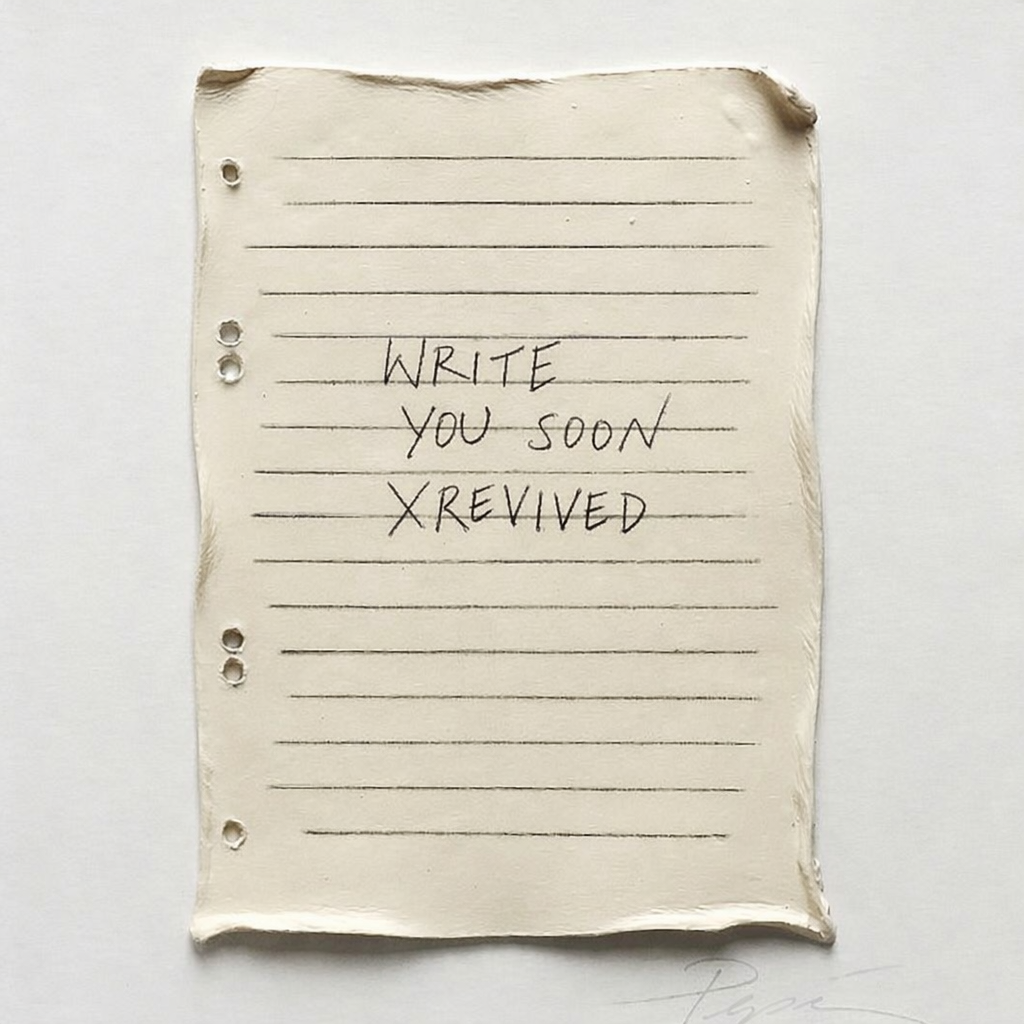 WRITE
YOU SOON
XREVIVED